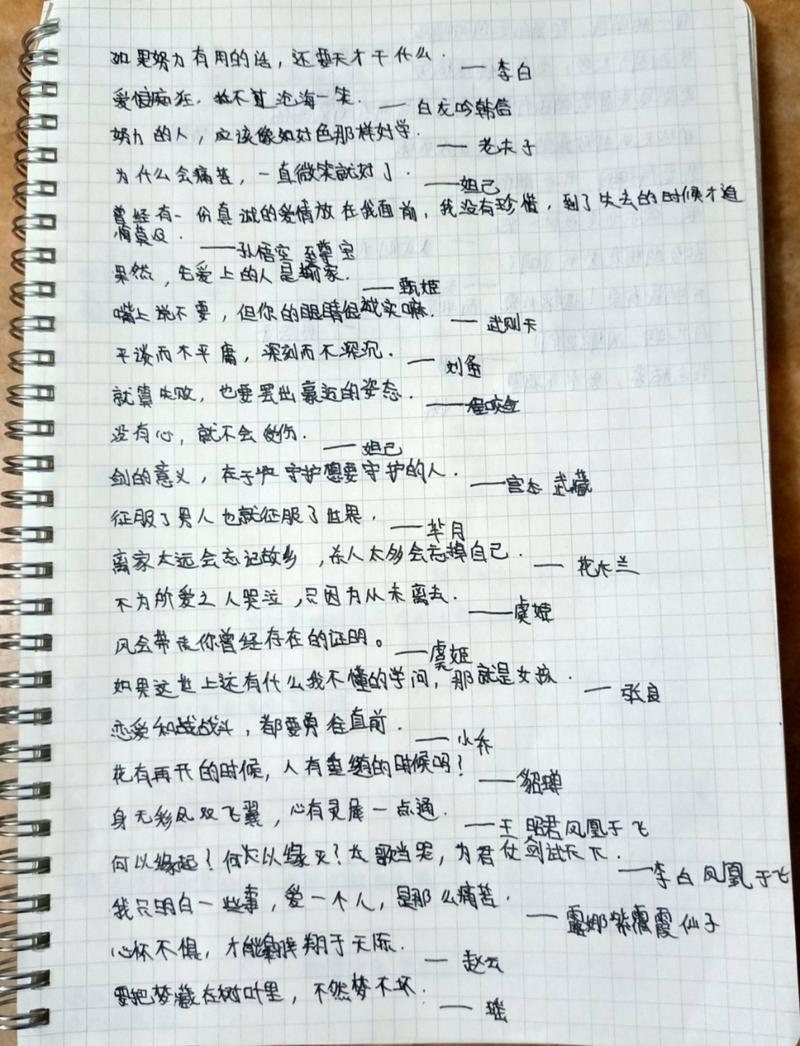 如果努力有用的话，还要天才干什么. ——李白
爱恨痴狂，敌不过沧海一笑. ——白龙吟韩信
努力的人，应该像好色那样好学. ——老夫子
为什么会痛苦，一直微笑就好了. ——妲己
曾经有一份真诚的爱情放在我面前，我没有珍惜，到了失去的时候才追
悔莫及. ——孙悟空 至尊宝
果然，先爱上的人是输家. ——甄姬
嘴上说不要，但你的眼睛很诚实嘛. ——武则天
平淡而不平庸，深刻而不深沉. ——刘备
就算失败，也要摆出豪迈的姿态. ——程咬金
没有心，就不会受伤. ——妲己
剑的意义，在于守护想要守护的人. ——宫本 武藏
征服了男人也就征服了世界. ——芈月
离家太远会忘记故乡，杀人太多会忘掉自己. ——花木兰
不为所爱之人哭泣，只因为从未离去. ——虞姬
风会带走你曾经存在的证明。——虞姬
如果这世上还有什么我不懂的学问，那就是女孩. ——张良
恋爱和战战斗，都要勇往直前. ——小乔
花有再开的时候，人有重逢的时候吗？——貂蝉
身无彩凤双飞翼，心有灵犀一点通. ——王昭君凤凰于飞
何以缘起？何以缘灭？长歌当哭，为君仗剑试天下. ——李白凤凰于飞
我只明白一些事，爱一个人，是那么痛苦. ——露娜紫霞仙子
心怀不惧，才能翱翔于天际. ——赵云
要把梦藏在树叶里，不然梦不坏. ——瑶